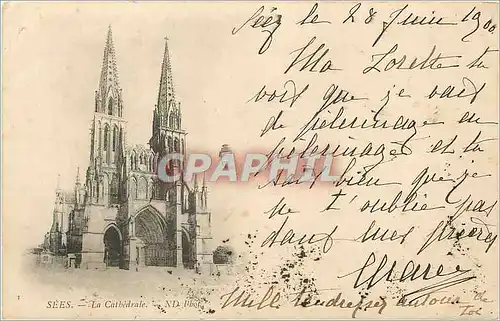 Séez le 28 Juin 1900
Ma Lorette tu
vois que je vais
de pèlerinage en
pèlerinage et tu
sais bien que je
ne t'oublie pas
dans mes prières
CPARAMA
Marie
Mille tendresses autour de
toi
1
SÉES. - La Cathédrale. - ND Phot.